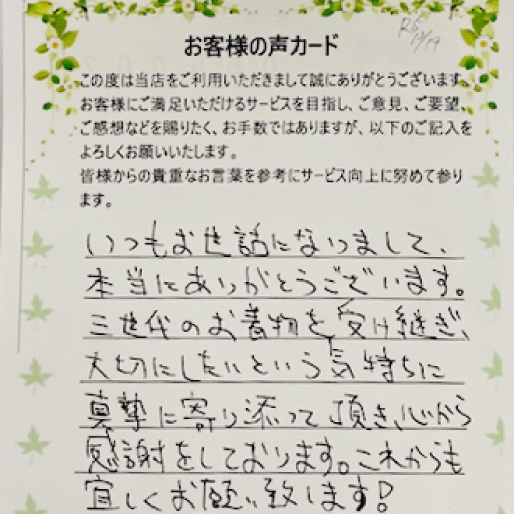 R5
お客様の声カード
この度は当店をご利用いただきまして誠にありがとうございます。
お客様にご満足いただけるサービスを目指し、ご意見、ご要望、
ご感想などを賜りたく、お手数ではありますが、以下のご記入を
よろしくお願いいたします。
皆様からの貴重なお言葉を参考にサービス向上に努めて参り
ます。
いつもお世話になりまして、
本当にありがとうございます。
三世代のお着物を受け継ぎ、
大切にしたいという気持ちに
真摯に寄り添って頂き、心から
感謝をしております。これからも
宜しくお願い致します!